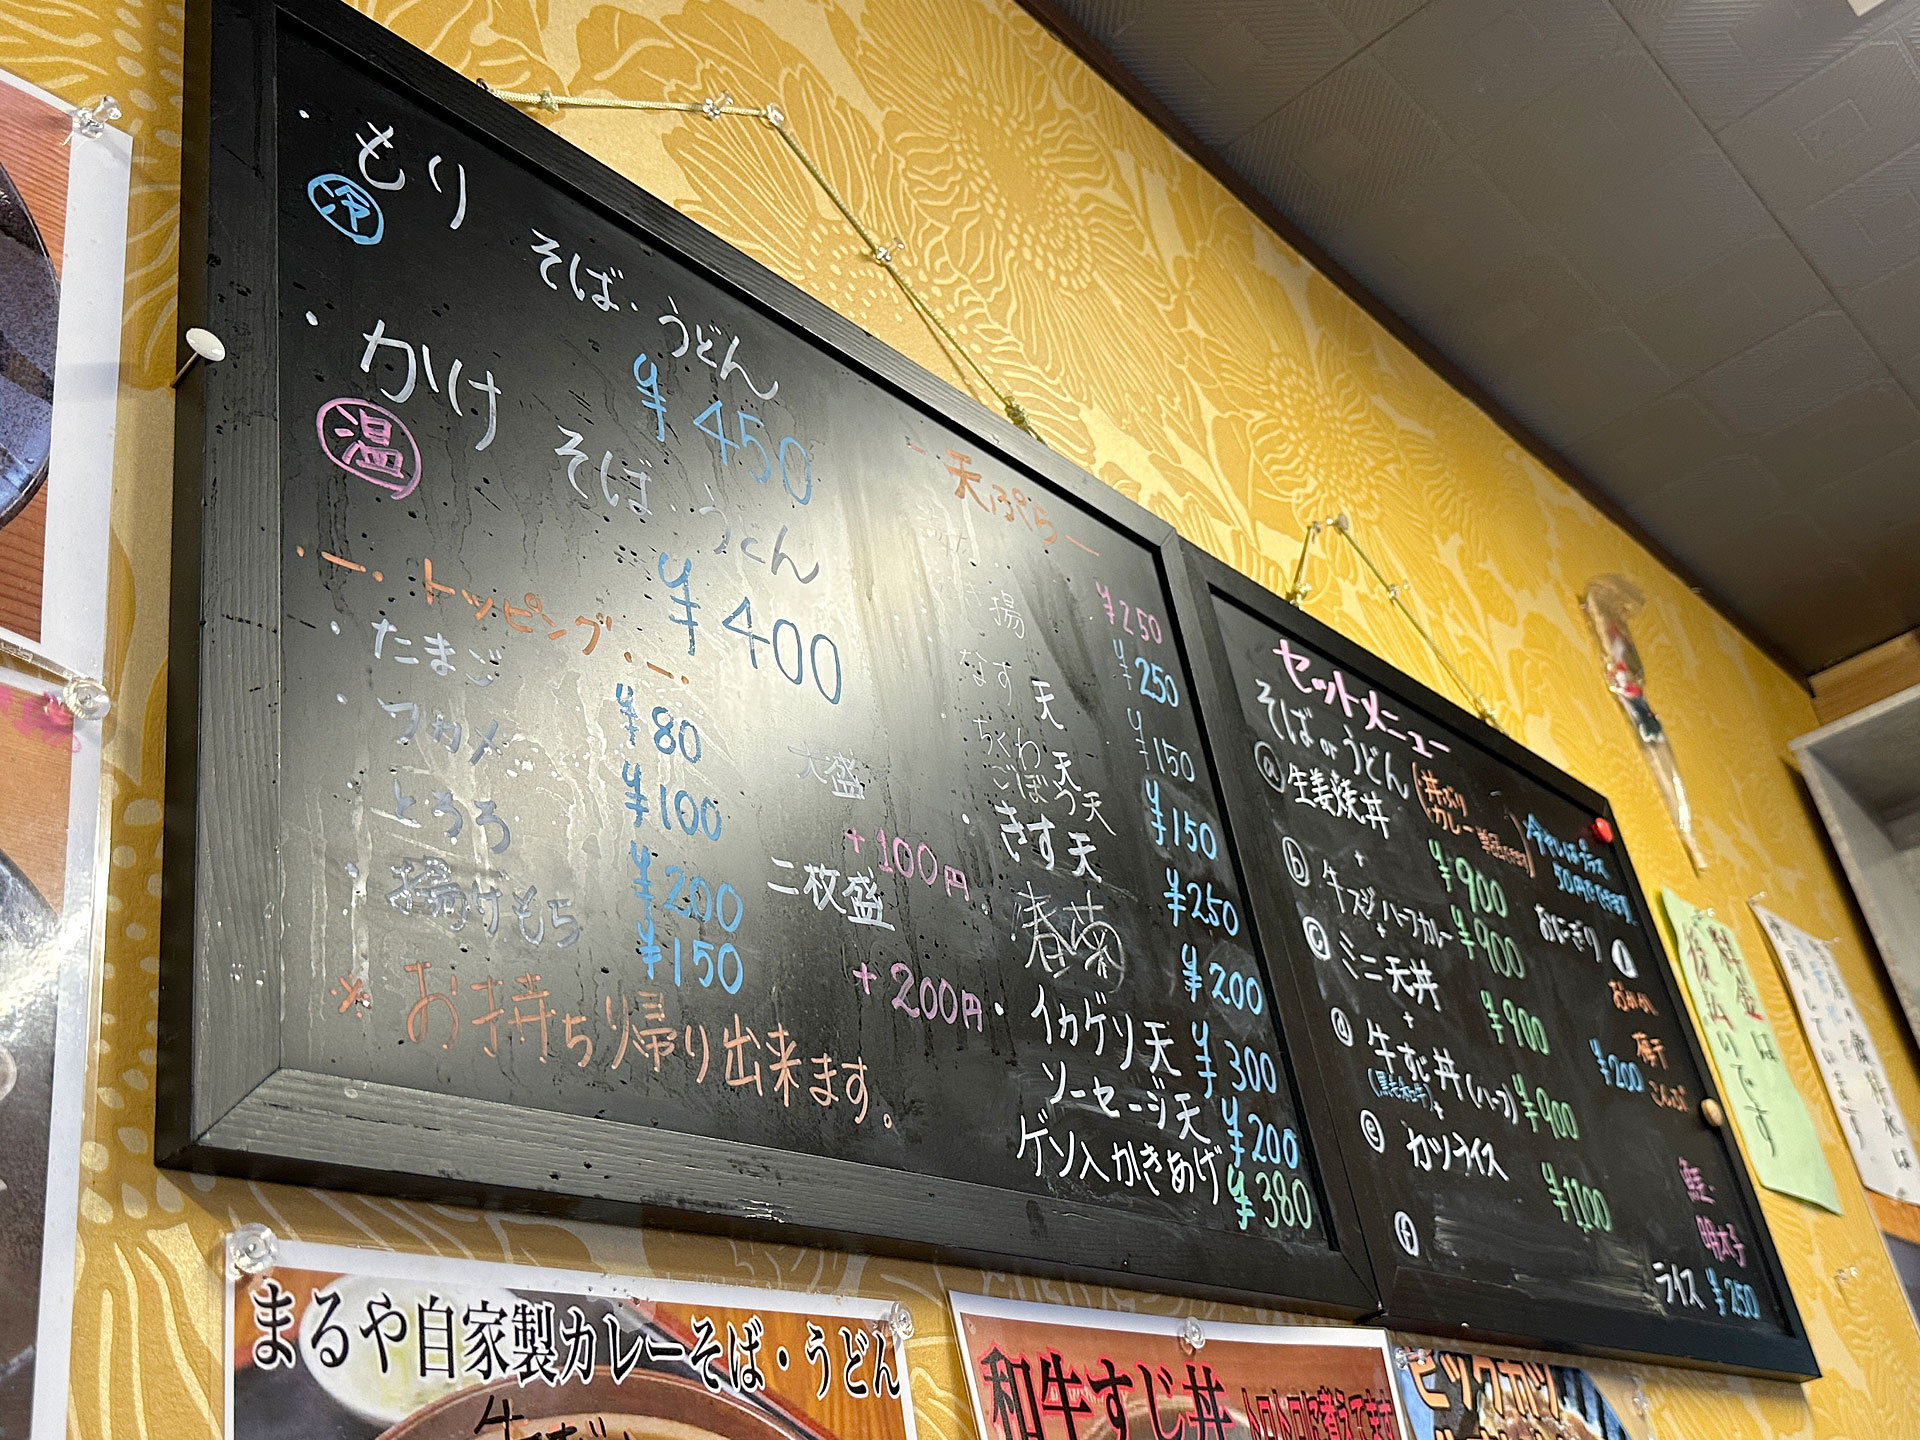 ・もり
冷
そば・うどん
¥450
・かけ
温
そば・うどん
¥400
・ー・トッピング・ー・
・たまご ¥80
・ワカメ ¥100
とろろ ¥200
・お揚げもち ¥150
※お持ち帰り出来ます。
大盛
+100円
二枚盛
+200円
ー天ぷらー
揚 ¥250
なす天 ¥250
ちくわ天 ¥150
ごぼう天 ¥150
・きす天 ¥250
・春菊 ¥200
・イカゲソ天 ¥300
ソーセージ天 ¥200
ゲソ入かきあげ ¥380
セットメニュー
そば or うどん
(丼ぶり
カレー
ⓐ生姜焼丼 ¥900
+
ⓑ牛スジハーフカレー ¥900
+
ⓒミニ天丼 ¥900
+
ⓓ牛すじ丼(ハーフ) ¥900
(黒毛和牛)+
ⓔカツライス ¥1100
ⓕ
50円
おにぎり 1
おかか
梅干
¥200
こんぶ
鮭
明太子
ライス ¥250
料金は
後払いです
まるや自家製カレーそば・うどん
和牛すじ丼
トロトロに煮えてます
ビックカツ